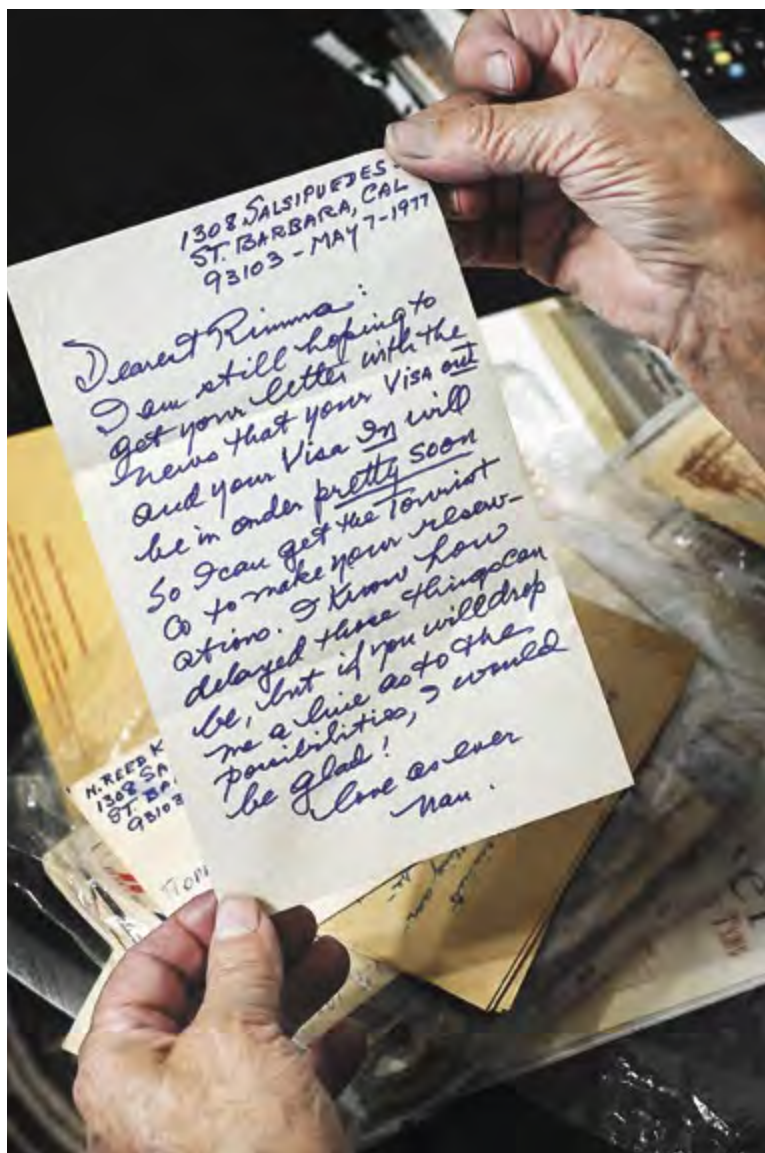 1308 SALSIPUEDES -
ST. BARBARA, CAL
93103 - MAY 7-1977
Dearest Rimma:
I am still hoping to
get your letter with the
news that your Visa out
and your Visa In will
be in order pretty soon
So I can get the Tourist
Co to make your reserv-
ations. I Know how
delayed those things can
be, but if you will drop
me a line as to the
possibilities, I would
be glad!
love as ever
Nan.
N. REED K
1308 SA
ST. BA
93103